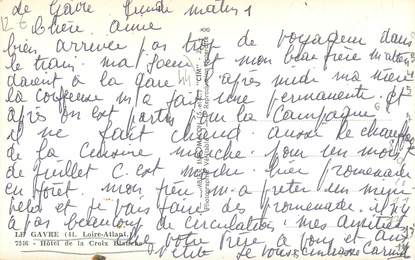 Le Gavre jeudi matin
Chère amie
bien arrivée pas trop de voyageur dans
le train. ma soeur et mon beau frère m'atten
daient à la gare. l'après midi ma nièce
la coiffeuse m'a fait une permanente. et
après on est partis pour la campagne
il ne fait chaud. aussi le chauffage
de la cuisine marche. pour un mois
de juillet c'est moche. hier promenade
en forêt. mon frère m'a prêter un
vélo et je vais faire des promenades. il n'y
a pas beaucoup de circulation. mes amitiés
LE GAVRE (44. Loire-Atlant.)
7246 - Hôtel de la Croix Blanche
votre frère à vous et au
petit Je vous embrasse